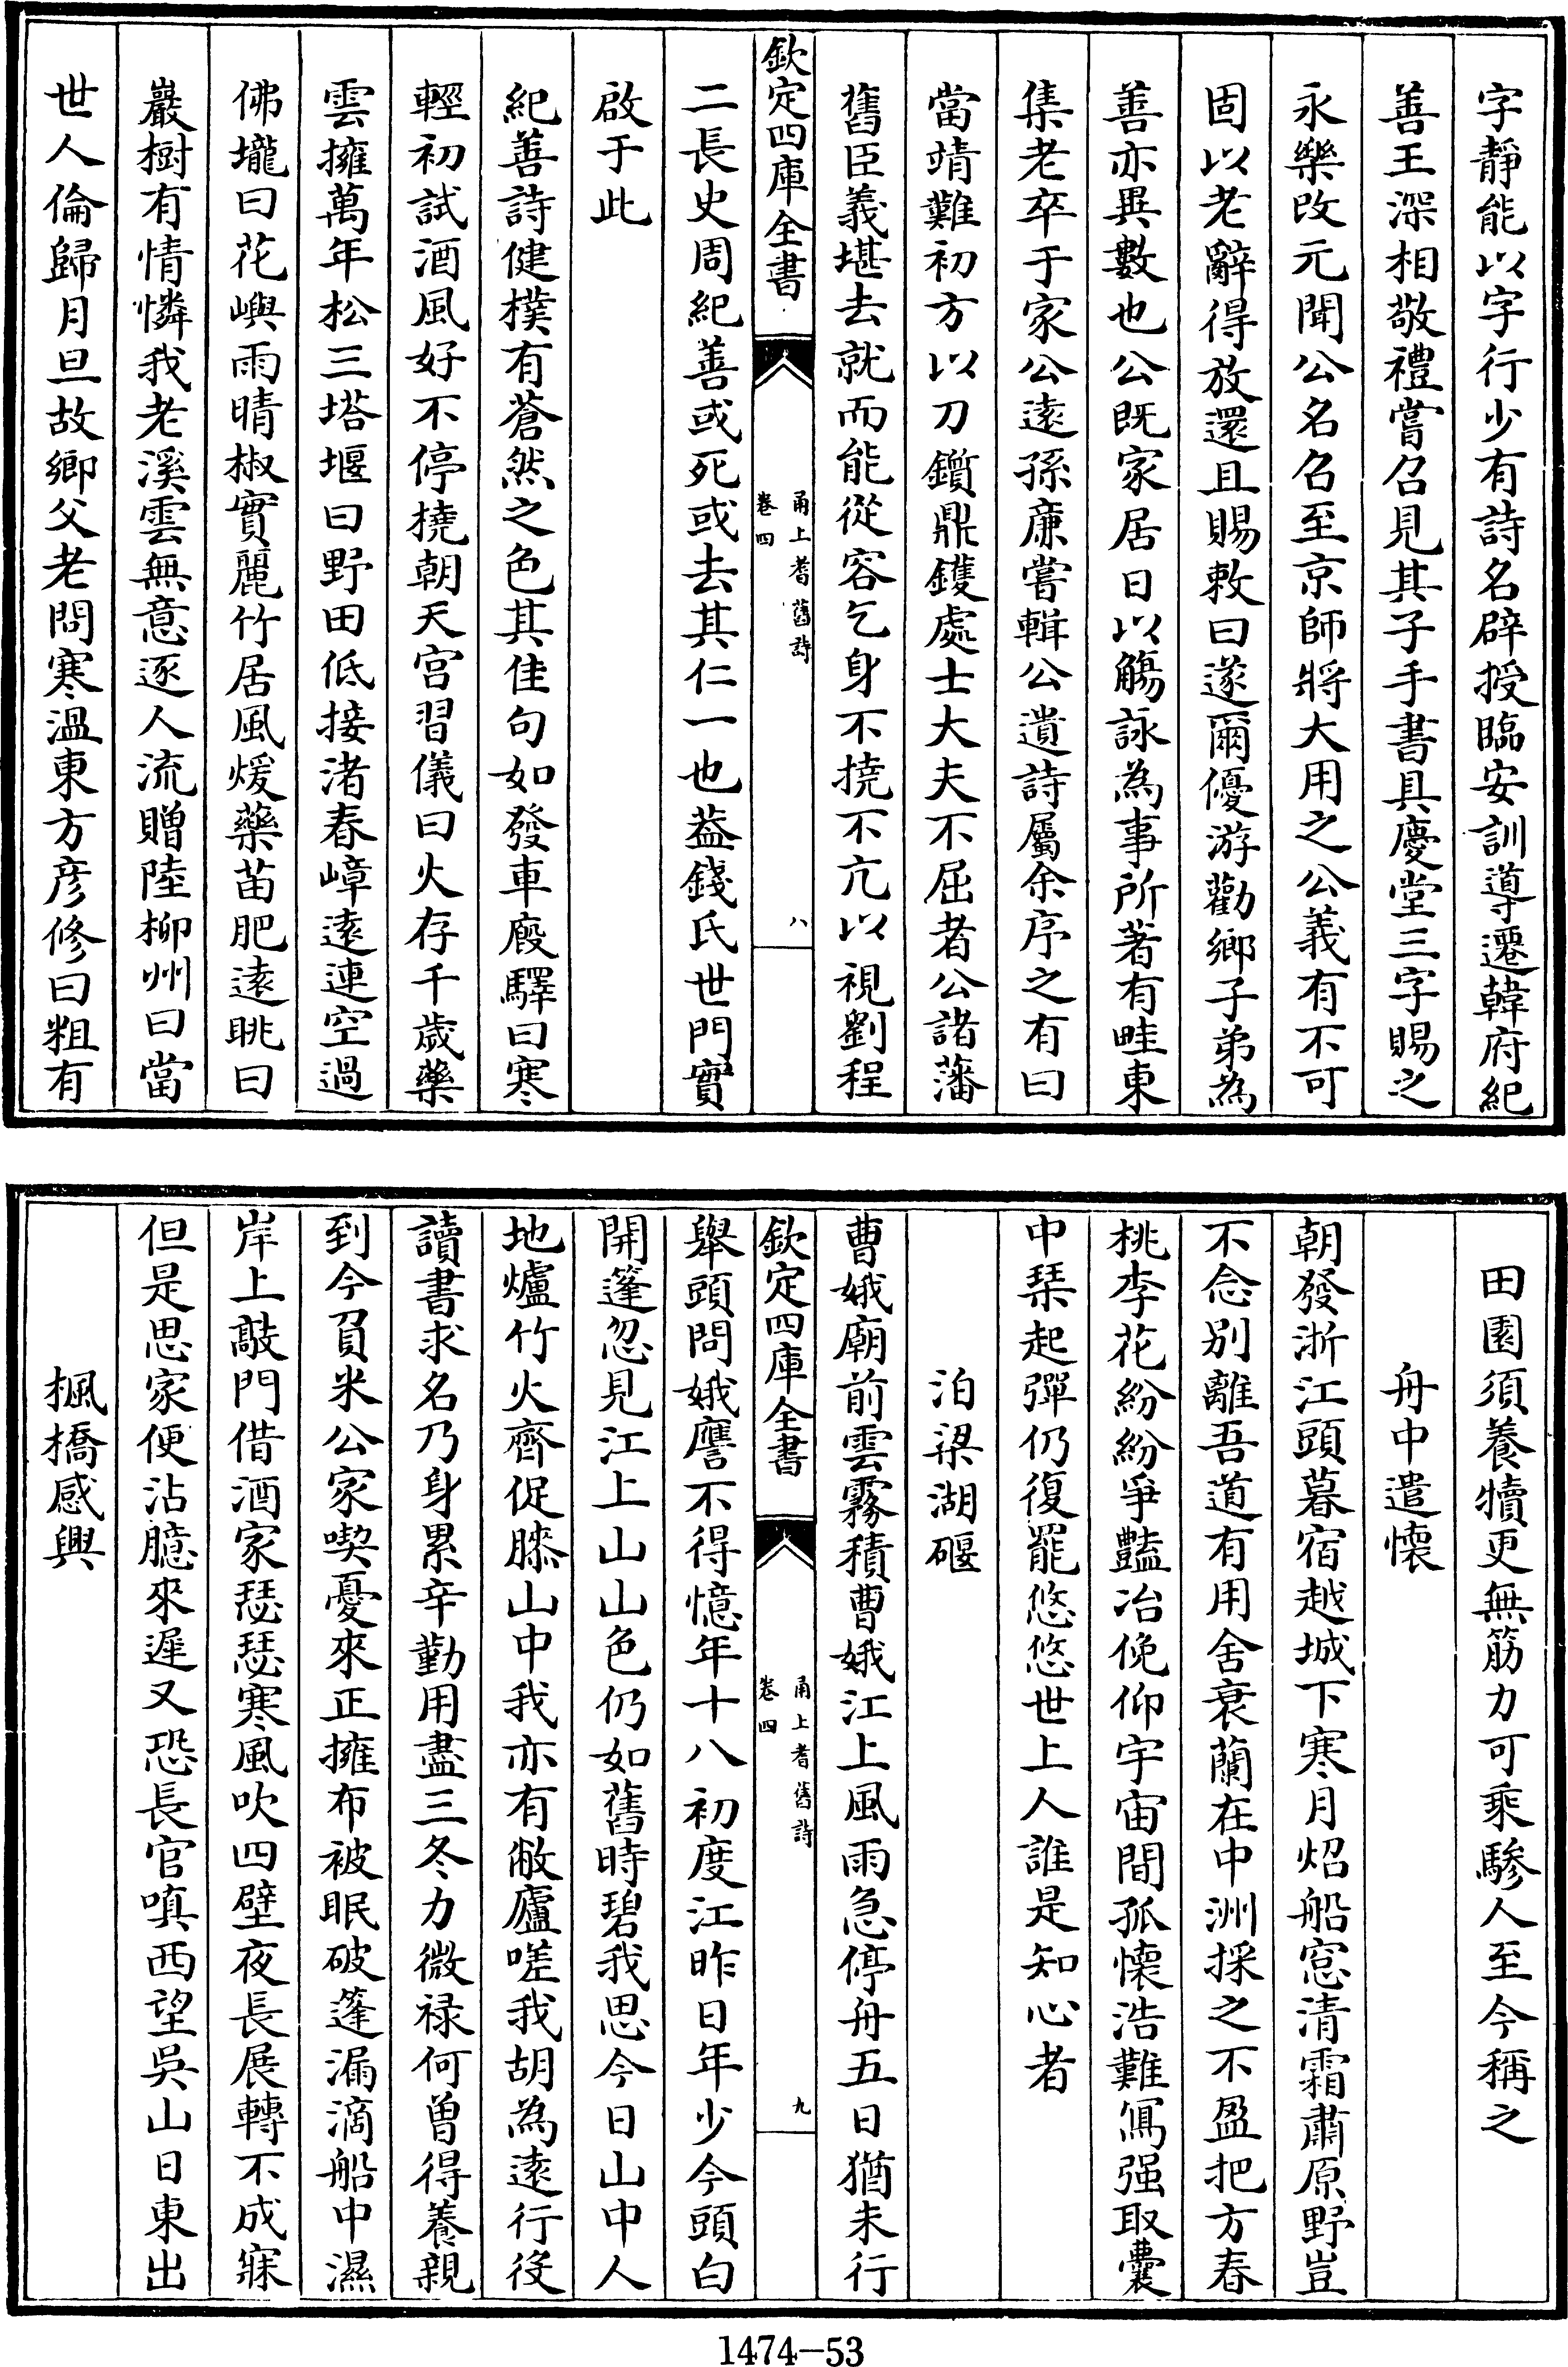 字靜能以字行少有詩名辟授臨安訓導遷韓府紀
善王深相敬禮嘗召見其子手書具慶堂三字賜之
永樂改元聞公名召至京師將大用之公義有不可
固以老辭得放還且賜敕曰遂爾優游勸鄉子弟為
善亦異數也公既家居日以觴詠為事所著有畦東
集老卒于家公遠孫廉嘗輯公遺詩屬余序之有曰
當靖難初方以刀鑕鼎鑊處士大夫不屈者公諸藩
舊臣義堪去就而能從容乞身不撓不亢以視劉程
欽定四庫全書
甬上耆舊詩
卷四
八
二長史周紀善或死或去其仁一也葢錢氏世門實
啟于此
紀善詩健樸有蒼然之色其佳句如發車廄驛曰寒
輕初試酒風好不停撓朝天宫習儀曰火存千歲藥
雲擁萬年松三塔堰曰野田低接渚春嶂遠連空過
佛壠曰花嶼雨晴椒實麗竹居風煖藥苗肥遠眺曰
巖樹有情憐我老溪雲無意逐人流贈陸柳州曰當
世人倫歸月旦故鄉父老問寒溫東方彦修曰粗有
田園須養犢更無筋力可乘驂人至今稱之
舟中遣懷
朝發浙江頭暮宿越城下寒月炤船窓清霜肅原野豈
不念别離吾道有用舍衰蘭在中洲採之不盈把方春
桃李花紛紛爭豔冶俛仰宇宙間孤懷浩難寫强取囊
中琹起彈仍復罷悠悠世上人誰是知心者
泊梁湖堰
曹娥廟前雲霧積曹娥江上風雨急停舟五日猶未行
欽定四庫全書
甬上耆舊詩
卷四
九
舉頭問娥鷹不得憶年十八初度江昨日年少今頭白
開篷忽見江上山山色仍如舊時碧我思今日山中人
地爐竹火齊促膝山中我亦有敝廬嗟我胡為遠行役
讀書求名乃身累辛勤用盡三冬力微禄何曾得養親
到今負米公家喫憂來正擁布被眠破篷漏滴船中濕
岸上敲門借酒家瑟瑟寒風吹四壁夜長展轉不成寐
但是思家便沾臆來遲又恐長官嗔西望吳山日東出
楓橋感興
1474-53